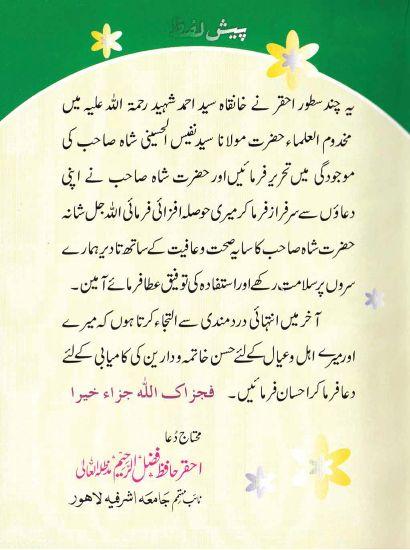 پیش لفظ
یہ چند سطور احقر نے خانقاہ سید احمد شہید رحمۃ اللہ علیہ میں
مخدوم العلماء حضرت مولانا سید نفیس الحسینی شاہ صاحب کی
موجودگی میں تحریر فرمائیں اور حضرت شاہ صاحب نے اپنی
دعاؤں سے سرفراز فرما کر میری حوصلہ افزائی فرمائی اللہ جل شانہ
حضرت شاہ صاحب کا سایہ صحت وعافیت کے ساتھ تا دیر ہمارے
سروں پر سلامت رکھے اور استفادہ کی توفیق عطا فرمائے آمین۔
آخر میں انتہائی دردمندی سے التجاء کرتا ہوں کہ میرے
اور میرے اہل وعیال کے لئے حسن خاتمہ و دارین کی کامیابی کے لئے
دعا فرما کر احسان فرمائیں۔ فجزاک اللہ جزاء خیرا
محتاج دُعا
احقر حافظ فضل الرحیم مدظلہ العالی
نائب مہتمم جامعہ اشرفیہ لاہور